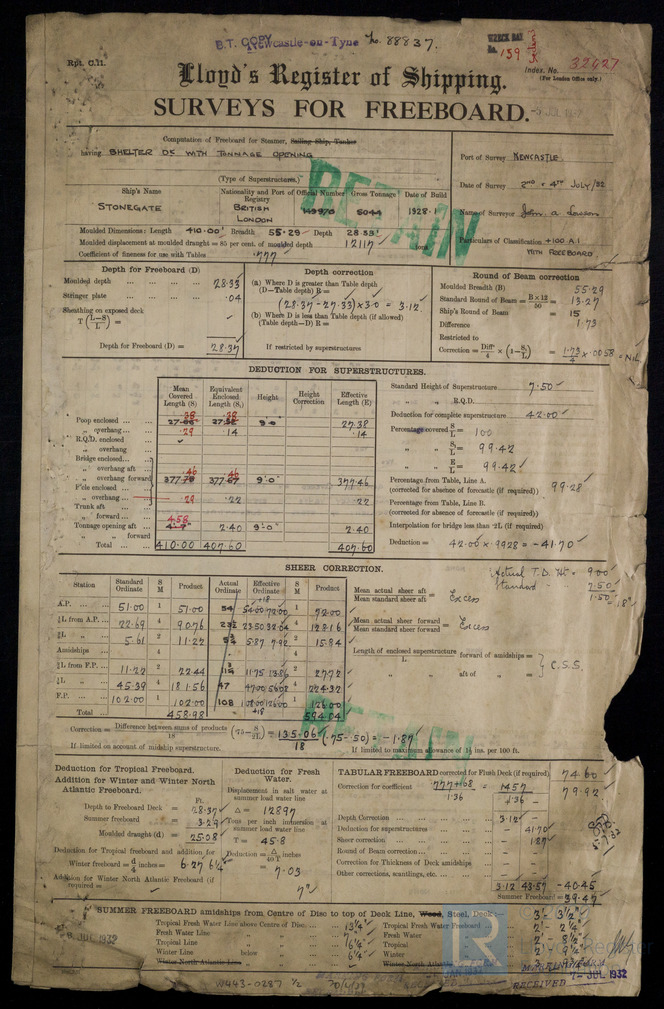 B.T. COPY
Newcastle-on-Tyne No. 88837.
WRECK
No. 159
Rpt. C.11.
Index. No. 32627
(For London Office only.)
Lloyd's Register of Shipping.
SURVEYS FOR FREEBOARD.
Computation of Freeboard for Steamer, Sailing Ship, Tanker
having SHELTER DK WITH TONNAGE OPENING
(Type of Superstructures.)
Port of Survey NEWCASTLE
Date of Survey 2ND & 4TH JULY/32
Name of Surveyor
Particulars of Classification +100 A.1
WITH FREEBOARD
Ship's Name
Nationality and Port of Registry
Official Number
Gross Tonnage
Date of Build
STONEGATE
BRITISH
LONDON
149970
5044
1928.1
RETAIN
Moulded Dimensions: Length 410.00' Breadth 55.29 Depth 28.33'
Moulded displacement at moulded draught = 85 per cent. of moulded depth 12117 tons
Coefficient of fineness for use with Tables .777
Depth for Freeboard (D)
Moulded depth 28.33
Stringer plate .04
Sheathing on exposed deck
T (L—S / L) =
Depth for Freeboard (D) = 28.37
Depth correction
(a) Where D is greater than Table depth
(D—Table depth) R =
(28.37 - 27.33) x 3.0 = 3.12
(b) Where D is less than Table depth (if allowed)
(Table depth—D) R =
If restricted by superstructures
Round of Beam correction
Moulded Breadth (B) 55.29
Standard Round of Beam = B × 12 / 50 = 13.27
Ship's Round of Beam = 15
Difference 1.73
Restricted to
Correction = Diff / 4 × (1—S/L) = 1.73 / 4 x .0058 = NIL
DEDUCTION FOR SUPERSTRUCTURES.
Mean Covered Length (S)
Equivalent Enclosed Length (S₁)
Height
Height Correction
Effective Length (E)
Poop enclosed 27.38
„ overhang .29 .14 .14
R.Q.D. enclosed
„ overhang
Bridge enclosed
„ overhang aft
„ overhang forward 9'.0" 377.46
F'cle enclosed
„ overhang .29 .22 .22
Trunk aft
„ forward 4.58
Tonnage opening aft 2.40 9'.0" 2.40
„ „ forward
Total 410.00 407.60 407.60
Standard Height of Superstructure 7.50
„ „ R.Q.D.
Deduction for complete superstructure 42.00
Percentage covered S/L = 100
„ „ S₁/L = 99.42
„ „ E/L = 99.42
Percentage from Table, Line A. 99.28
(corrected for absence of forecastle (if required))
Percentage from Table, Line B.
(corrected for absence of forecastle (if required))
Interpolation for bridge less than ·2L (if required)
Deduction = 42.00 x .9928 = -41.70
SHEER CORRECTION.
Actual T.D. Ht = 9.00
Standard 7.50
1.50 = 18"
Station
Standard Ordinate
S M
Product
Actual Ordinate
Effective Ordinate
S M
Product
+18
A.P. 51.00 1 51.00 54 54.00 72.00 1 72.00
⅙L from A.P. 22.69 4 90.76 23½ 23.50 32.04 4 128.16
⅓L „ 5.61 2 11.22 5¾ 5.87 7.92 2 15.84
Amidships 4 4
⅓L from F.P. 11.22 2 22.44 11¾ 11.75 13.86 2 27.72
⅙L „ 45.39 4 181.56 47 47.00 56.08 4 224.32
F.P. 102.00 1 102.00 108 108.00 126.00 1 126.00
Total 458.98 +18 594.04
Mean actual sheer aft / Mean standard sheer aft = Excess
Mean actual sheer forward / Mean standard sheer forward = Excess
Length of enclosed superstructure / L forward of amidships =
„ „ aft of „ =
C.S.S.
Correction = Difference between sums of products / 18 (·75—S/2L) = 135.06 / 18 (.75-.50) = -1.87
If limited on account of midship superstructure.
If limited to maximum allowance of 1½ ins. per 100 ft.
RETAIN
Deduction for Tropical Freeboard.
Addition for Winter and Winter North Atlantic Freeboard.
Ft.
Depth to Freeboard Deck = 28.37
Summer freeboard = 3.29
Moulded draught (d) = 25.08
Deduction for Tropical freeboard and addition for
Winter freeboard = d/4 inches = 6.27 6¼"
Addition for Winter North Atlantic Freeboard (if required) =
Deduction for Fresh Water.
Displacement in salt water at summer load water line
Δ = 12897
Tons per inch immersion at summer load water line
T = 45.8
Deduction = Δ / 40 T inches
= 7.03
7"
TABULAR FREEBOARD corrected for Flush Deck (if required) 74.60
Correction for coefficient .777+.68 / 1.36 = 1.457 / 1.36 79.92
+ —
Depth Correction 3.12 —
Deduction for superstructures — 41.70
Sheer correction — 1.87
Round of Beam correction — —
Correction for Thickness of Deck amidships — —
Other corrections, scantlings, etc. — —
3.12 43.57 -40.45
Summer Freeboard = 39.47
SUMMER FREEBOARD amidships from Centre of Disc to top of Deck Line, Wood, Steel, Deck:— 3'- 3½"
Tropical Fresh Water Line above Centre of Disc 13¼"
Fresh Water Line „ „ 7"
Tropical Line „ „ 6¼"
Winter Line below „ 6¼"
Winter North Atlantic Line „ „
Tropical Fresh Water Freeboard 2'- 2¼"
Fresh Water „ 2'- 8½"
Tropical „ 2'- 9¼"
Winter „
Winter North Atlantic „
8 JUL 1932
7- JUL 1932
RECEIVED
W443-0287 ½
LR
Lloyd's Register